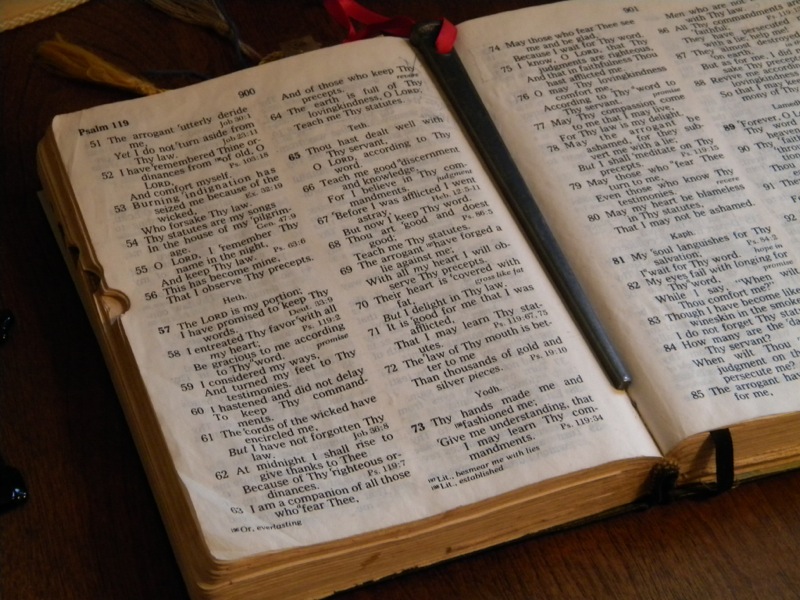 Psalm 119
900
51 The arrogant utterly deride
me,
Job 30:1
Yet I do not turn aside from
Thy law.
52 I have remembered Thine or-
dinances from of old, O
LORD,
Ps. 103:18
And comfort myself.
53 Burning indignation has
seized me because of the
wicked,
Who forsake Thy law.
54 Thy statutes are my songs
In the house of my pilgrim-
age.
Gen. 47:9
55 O LORD, I remember Thy
name in the night,
Ps. 63:6
And keep Thy law.
56 This has become mine,
That I observe Thy precepts.
Heth.
57 The LORD is my portion;
I have promised to keep Thy
words.
Deut. 33:9
58 I entreated Thy favor with all
my heart;
Ps. 119:2
Be gracious to me according
to Thy word.
promise
59 I considered my ways,
And turned my feet to Thy
testimonies.
60 I hastened and did not delay
To keep Thy command-
ments.
61 The cords of the wicked have
encircled me,
But I have not forgotten Thy
law.
Job 36:8
62 At midnight I shall rise to
give thanks to Thee
Because of Thy righteous or-
dinances.
Ps. 119:7
63 I am a companion of all those
who fear Thee,
Or, everlasting
And of those who keep Thy
precepts.
64 The earth is full of Thy
lovingkindness, O LORD;
Teach me Thy statutes.
Teth.
65 Thou hast dealt well with
Thy servant,
O LORD, according to Thy
word.
66 Teach me good discernment
and knowledge,
judgment
For I believe in Thy com-
mandments.
67 Before I was afflicted I went
astray,
Heb. 12:5-11
But now I keep Thy word.
68 Thou art good and doest
good;
Ps. 86:5
Teach me Thy statutes.
69 The arrogant have forged a
lie against me;
With all my heart I will ob-
serve Thy precepts.
70 Their heart is covered with
fat,
gross like fat
But I delight in Thy law.
71 It is good for me that I was
afflicted,
That I may learn Thy stat-
utes.
Ps. 119:67, 75
72 The law of Thy mouth is bet-
ter to me
Ps. 19:10
Than thousands of gold and
silver pieces.
Yodh.
73 Thy hands made me and
fashioned me;
Give me understanding, that
I may learn Thy com-
mandments.
Ps. 119:34
Lit., besmear me with lies
Lit., established
901
74 May those who fear Thee see
me and be glad,
Because I wait for Thy word.
75 I know, O LORD, that Thy
judgments are righteous,
And that in faithfulness Thou
hast afflicted me.
76 O may Thy lovingkindness
comfort me,
According to Thy word to
Thy servant.
promise
77 May Thy compassion come
to me that I may live,
For Thy law is my delight.
78 May the arrogant be
ashamed, for they sub-
vert me with a lie;
But I shall meditate on Thy
precepts.
79 May those who fear Thee
turn to me,
Even those who know Thy
testimonies.
80 May my heart be blameless
in Thy statutes,
That I may not be ashamed.
Kaph.
81 My soul languishes for Thy
salvation;
Ps. 84:2
I wait for Thy word.
hope in
82 My eyes fail with longing for
Thy word,
promise
While I say, "When wilt
Thou comfort me?"
83 Though I have become like
wineskin in the smoke
I do not forget Thy stat
84 How many are the da
Thy servant?
When wilt Thou
judgment on th
persecute me?
85 The arrogant hav
for me,
Men who are not
with Thy law.
86 All Thy commandments ar
faithful;
They have persecuted
with a lie; help me!
87 They almost destro
But as for me, I did
88 Revive me accordin
So that I may keep
mony of Thy
Lamedh
89 Forever, O
Thy word
heaven
90
91
92